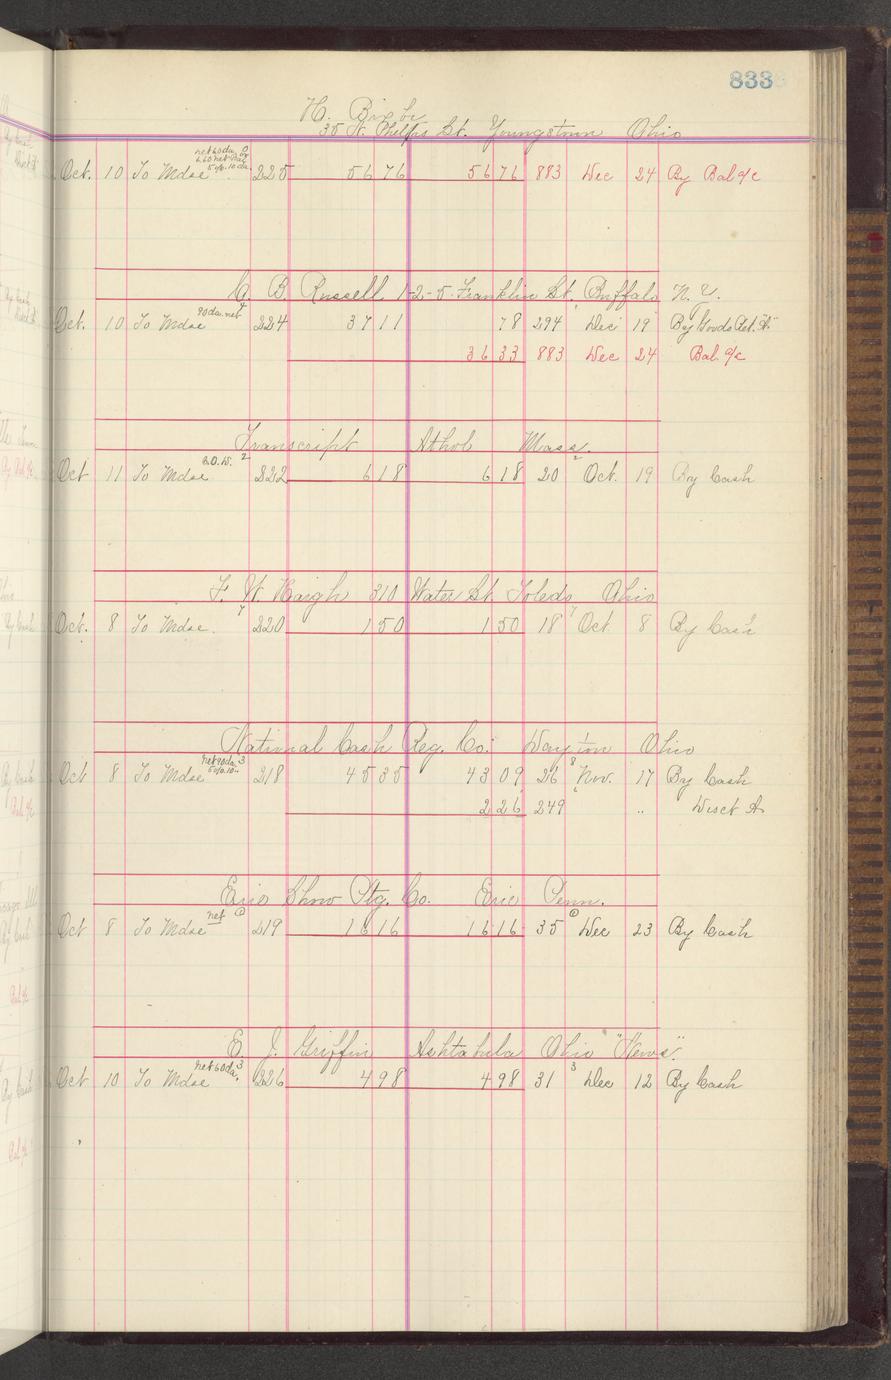 833
H. Bixby
35 N. Phelps St. Youngstown Ohio
Oct. 10 To Mdse net 60 da. 225 56 76 56 76 883 Dec 24 By Bal a/c
C. B. Russell 1-2-5 Franklin St. Buffalo N. Y.
Oct. 10 To Mdse 90 da. net 224 37 11 78 294 Dec 19 By Goods Ret. "A"
36 33 883 Dec 24 Bal a/c
Transcript Athol Mass.
Oct 11 To Mdse 2 222 6 18 6 18 20 2 Oct. 19 By Cash
F. W. Haigh 310 Water St. Toledo Ohio
Oct. 8 To Mdse. 7 220 1 50 1 50 18 7 Oct 8 By Cash
National Cash Reg. Co. Dayton Ohio
Oct 8 To Mdse net 90 da. 3 5% 10 " 218 45 35 43 09 26 8 Nov. 17 By Cash
2 26 249 " Disct A
Erie Show Ptg. Co. Erie Penn.
Oct 8 To Mdse net 219 16 16 16 16 35 Dec 23 By Cash
E. J. Griffin Ashtabula Ohio "News".
Oct 10 To Mdse net 60 da. 3 226 4 98 4 98 31 3 Dec 12 By Cash